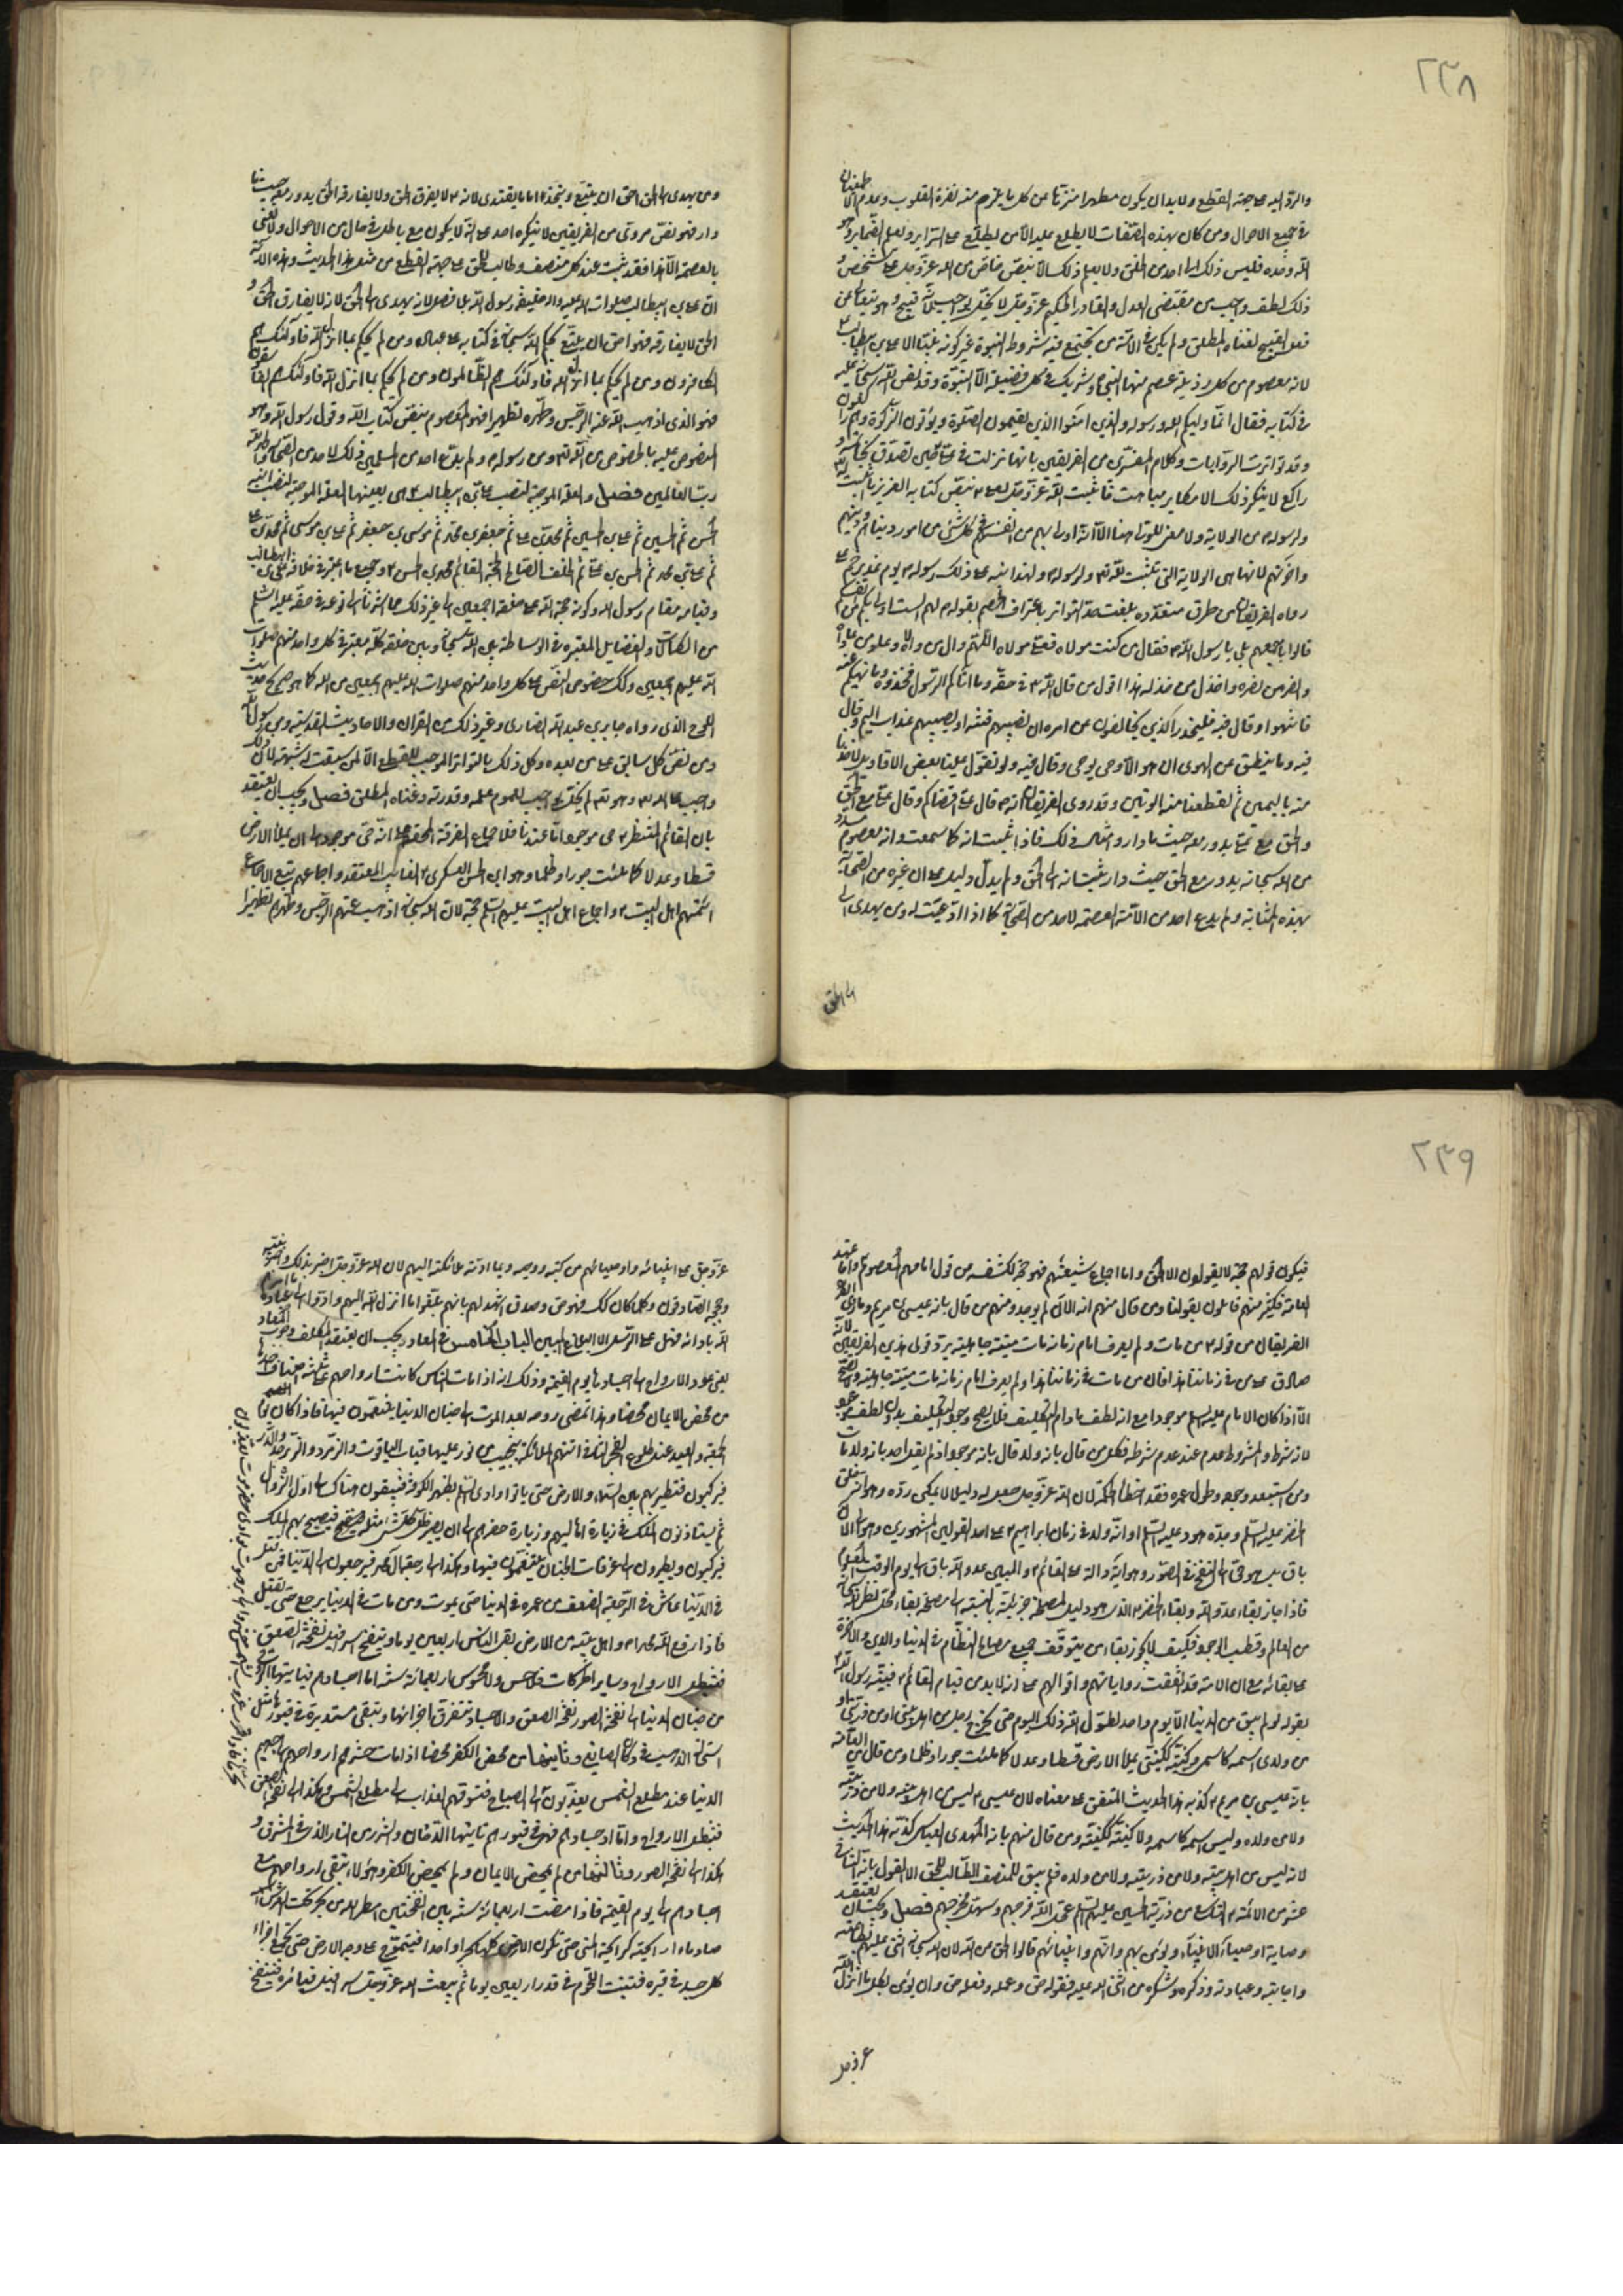 ٢٣٨
والرد اليه على جهة القطع ولا بد ان يكون مطهرا منزها عن كل ما يلزم منه نفرة القلوب وعدم الاطمئنان
في جميع الاحوال ومن كان بهذه الصفات لا يطلع عليه الا من يطلع على السراير ويعلم الضماير وهو
الله وحده فليس ذلك الى احد من الخلق ولا يعلم ذلك الا بنص خاص من الله عز وجل على شخص و
ذلك لطف واجب من مقتضى العدل والقادر الحكيم عز وجل لا يخل بواجب لانه قبيح وهو يتعالى عن
فعل القبيح لغناه المطلق ولم يكن في الامة من تجتمع فيه شروط النبوة غير كونه نبيا الا علي بن ابي طالب
لانه معصوم من كل رذيلة عصم منها النبي وشريك في كل فضيلة الا النبوة وقد نص الله سبحانه عليه
في كتابه فقال انما وليكم الله ورسوله والذين امنوا الذين يقيمون الصلوة ويؤتون الزكوة وهم راكعون
وقد تواترت الروايات وكلام المفسرين من الفريقين بانها نزلت في علي حين تصدق بخاتمه و
راكع لا ينكر ذلك الا مكابر مباهت فاثبت الله عز وجل لعلي بنص كتابه العزيز ما اثبت له
ولرسوله من الولاية ولا معنى للولي هنا الا انه اولى بهم من انفسهم في كل شئ من امور دينهم ودنياهم
واخرتهم لانها هي الولاية التي تثبت لله ولرسوله ولهذا نبه على ذلك رسوله يوم غدير خم على
رواه الفريقان من طرق متعددة بلغت حد التواتر باعتراف الخصم بقوله لهم الست اولى بكم من انفسكم
قالوا باجمعهم بلى يا رسول الله فقال من كنت مولاه فعلي مولاه اللهم وال من والاه وعاد من عاداه
وانصر من نصره واخذل من خذله هذا اقول من قال الله في حقه وما اتاكم الرسول فخذوه وما نهيكم عنه
فانتهوا وقال فيه فليحذر الذين يخالفون عن امره ان تصيبهم فتنة او يصيبهم عذاب اليم وقال
فيه وما ينطق عن الهوى ان هو الا وحي يوحى وقال فيه ولو تقول علينا بعض الاقاويل لاخذنا
منه باليمين ثم لقطعنا منه الوتين وقد روى الفريقان انه قال علي اقضاكم وقال علي مع الحق
والحق مع علي يدور معه حيث ما دار وامثال ذلك فاذا ثبت انه كما سمعت وانه معصوم مسدد
من الله سبحانه يدور مع الحق حيث دار ثبت انه الى الحق ولم يدل دليل على ان غيره من الصحابة
بهذه المثابة ولم يدع احد من الامة العصمة لاحد من الصحابة كما اذا ادعيت له ومن يهدي الى
الى الحق
ومن يهدي الى الحق احق ان يتبع ويتخذ اماما يقتدى لانه لا يفارق الحق ولا يفارقه الحق يدور معه حيث ما
دار فهو نص مروي من الفريقين لا ينكره احد على انه لا يكون مع باطل في حال من الاحوال ولا نعني
بالعصمة الا هذا فقد ثبت عند كل منصف وطالب للحق على جهة القطع من هذا الحديث وهذه الاية
ان علي بن ابيطالب صلوات الله عليه واله خليفة رسول الله بلا فصل لانه يهدي الى الحق لانه لا يفارق الحق و
الحق لا يفارقه فهو احق ان يتبع بحكم الله سبحانه في كتابه على عباده ومن لم يحكم بما انزل الله فاولئك هم
الكافرون ومن لم يحكم بما انزل الله فاولئك هم الظالمون ومن لم يحكم بما انزل الله فاولئك هم الفاسقون
فهو الذي اذهب الله عنه الرجس وطهره تطهيرا فهو المعصوم بنص كتاب الله وقول رسول الله وهو
المنصوص عليه بالخصوص من الله ومن رسوله ولم يدع احد من المسلمين ذلك لاحد من الصحابة والحمد لله
رب العالمين فصل والعلة الموجبة لنصب علي بن ابيطالب هي بعينها العلة الموجبة لنصب ابنيه
الحسن ثم الحسين ثم علي بن الحسين ثم محمد بن علي ثم جعفر بن محمد ثم موسى بن جعفر ثم علي بن موسى ثم محمد بن علي
ثم علي بن محمد ثم الحسن بن علي ثم الخلف الصالح الحجة القائم محمد بن الحسن وجميع ما اعتبر في خلافة علي بن ابيطالب
وقيامه مقام رسول الله وكونه حجة الله على خلقه اجمعين الى غير ذلك مما اشرنا الى نوعه في حقه عليه السلم
من الكمالات والفضايل المعتبرة في الوساطة بين الله سبحانه وبين خلقه كله معتبر في كل واحد منهم صلوات
الله عليهم اجمعين وكذلك خصوص النص على كل واحد منهم صلوات الله عليهم اجمعين من الله كما هو صريح حديث
اللوح الذي رواه جابر بن عبد الله انصاري وغير ذلك من القران والاحاديث القدسية ومن رسول الله
ومن نص كل سابق على من بعده وكل ذلك بالتواتر الموجب للقطع الا لمن سبقت له شبهة لان ذلك
واجب على الله وهو لم يخل بواجب لعموم علمه وقدرته وغناه المطلق فصل ويجب ان يعتقد
بان القائم المنتظر حي موجود اما عندنا فلاجماع الفرقة المحقة على انه حي موجود الى ان يملأ الارض
قسطا وعدلا كما ملئت جورا وظلما وهو ابن الحسن العسكري الغايب المفتقد واجماعهم يتبع لاجماع
ائمتهم اهل البيت واجماع اهل البيت عليهم السلم حجة لان الله سبحانه اذهب عنهم الرجس وطهرهم تطهيرا
٢٣٩
فيكون قولهم حجة لا يقولون الا الحق واما اجماع شيعتهم فهو حجة لكشفه عن قول امامهم المعصوم واما عند
العامة فكثير منهم قائلون بقولنا ومن قال منهم انه الان لم يوجد ومنهم من قال بانه عيسى بن مريم وما روى
الفريقان من قوله من مات ولم يعرف امام زمانه مات ميتة جاهلية يرد قول هذين الفريقين لانه
صادق على من في زماننا هذا فان من مات في زماننا هذا ولم يعرف امام زمانه مات ميتة جاهلية ولا يصح
الا اذا كان الامام عليه السلم موجودا مع انه لطف ما دام التكليف فلا يصح وجود التكليف بدون لطف موجود
لانه شرط والمشروط عدم عند عدم شرطه فكل من قال بانه ولد قال بانه موجود اذ لم يقل احد بانه ولد ومات
ومن استبعد وجوده وطول عمره فقد اخطأ الحكمة لان الله عز وجل جعل له دليلا لا يمكن رده وهو انه
الخضر عليه السلم وجده هود عليه السلم او انه ولد في زمان ابراهيم على احد القولين المشهورين وهو الى الان
باق بل هو حي الى النفخ في الصور وهو اية دالة على القائم وابليس عدو الله باق الى يوم الوقت المعلوم
فاذا جاز بقاء عدو الله وبقاء الخضر الذي هو دليل لمصلحة جزئية بالنسبة الى مصلحة بقاء محل نظر الله
من العالم وقطب الوجود فكيف لا يجوز بقاء من يتوقف جميع مصالح النظام في الدنيا والدين والاخرة
على بقائه مع ان الامة قد اتفقت رواياتهم واقوالهم على انه لا بد من قيام القائم فبينه رسول الله
بقوله لو لم يبق من الدنيا الا يوم واحد لطول الله ذلك اليوم حتى يخرج رجل من اهل بيتي او من ذريتي او
من ولدي اسمه كاسمي وكنيته ككنيتي يملأ الارض قسطا وعدلا كما ملئت جورا وظلما ومن قال من العامة
بانه عيسى بن مريم كذبه هذا الحديث المتفق على معناه لان عيسى ليس من اهل بيته ولا من ذريته
ولا من ولده وليس اسمه كاسمه ولا كنيته ككنيته ومن قال منهم بانه المهدي العباسي كذبه هذا الحديث
لانه ليس من اهل بيته ولا من ذريته ولا من ولده فلم يبق للمنصف الطالب للحق الا القول بانه الثاني
عشر من الائمة التاسع من ذرية الحسين عليهم السلم عجل الله فرجهم وسهل مخرجهم فصل ويجب ان يعتقد
وصاية اوصياء الانبياء ويؤمن بهم وانهم وانبيائهم قالوا الحق من الله لان الله سبحانه اثنى عليهم بطاعته
واجابته وعبادته وذكره وشكره من اثنى الله عليه فقوله حق وعمله وفعله حق وان يؤمن بكل ما انزل الله
عز وجل
عز وجل على انبيائه واوصيائهم من كتبه ووحيه وما ادته ملائكته اليهم لان الله عز وجل اخبر بذلك
وحججه الصادقون وكلما كان كذلك فهو حق وصدق اشهد لهم بانهم بلغوا ما انزل الله اليهم وادوا الى عباده ما امرهم
الله بادائه فهل على الرسل الا البلاغ المبين الباب الخامس في المعاد يجب ان يعتقد المكلف وجوب المعاد
يعني عود الارواح الى اجسادها يوم القيمة وذلك انه اذا مات الناس كانت ارواحهم على ثلثة اصناف احدها
من محض الايمان محضا وهذا تمضي روحه بعد الموت الى جنان الدنيا يتنعمون فيها فاذا كان يوم
الجمعة والعيد عند طلوع الفجر الثاني اتتهم الملائكة بنجائب من نور عليها قباب الياقوت والزمرد والزبرجد
فيركبون فتطير بهم بين السماء والارض حتى ياتوا وادي السلم بظهر الكوفة فيبقون هناك الى اول الزوال
ثم يستأذنون الملك في زيارة اهاليهم وزيارة حفرهم الى ان يصير ظل كل شئ مثله فيصيح بهم الملك
فيركبون ويطيرون الى غرفات الجنان يتنعمون فيها وهكذا الى رجعة ال محمد فيرجعون الى الدنيا فمن قتل
في الدنيا عاش في الرجعة الضعف من عمره في الدنيا حتى يموت ومن مات في الدنيا يرجع حتى يقتل
فاذا رفع الله محمدا واهل بيته من الارض بقي الناس اربعين يوما وينفخ اسرافيل نفخة الصعق
فتبطل الارواح وساير الحركات فلا حس ولا محسوس اربعمائة سنة اما اجسادهم
من جنان الدنيا الى نفخة الصور نفخة الصعق والاجساد تتفرق اجزائها وتبقى مستديرة في قبورها مثل
سحالة الذهب في دكان الصايغ وثانيها من محض الكفر محضا اذا مات حشرهم ارواحهم الى جهنم
الدنيا عند مطلع الشمس يعذبون الى الصباح فتسوقهم العذاب الى مطلع الشمس وهكذا الى نفخة الصعق
فتبطل الارواح واما اجسادهم فهي في قبورهم تاتيها الدخان والشرر من النار التي في المشرق و
هكذا الى نفخة الصور وثالثها من لم يمحض الايمان ولم يمحض الكفر وهؤلاء تبقى ارواحهم مع
اجسادهم الى يوم القيمة فاذا مضت اربعمائة سنة بين النفختين امطر الله من بحر تحت العرش
صاد ماء رائحته كرائحة المني حتى تكون الارض كلها بحرا واحدا فيتموج على وجه الارض حتى تجتمع اجزاء
كل جسد في قبره فتنبت اللحوم في قدر اربعين يوما ثم يبعث الله عز وجل اسرافيل فيأمره فينفخ